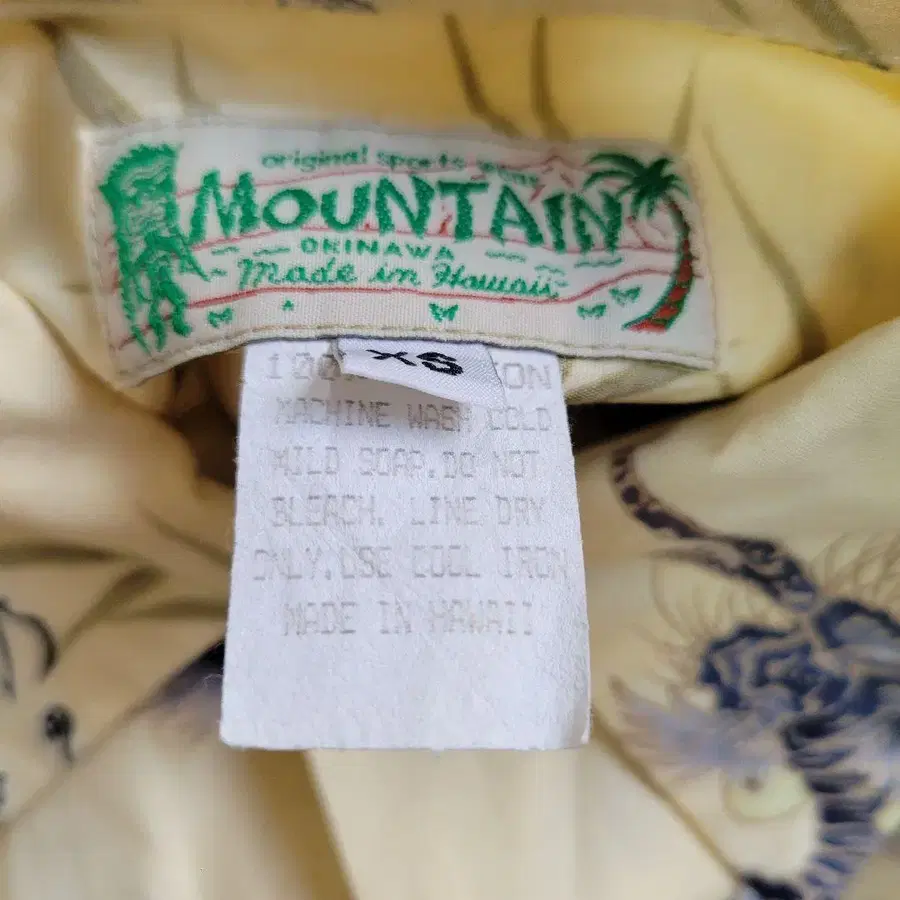 original sports wear
MOUNTAIN
OKINAWA
Made in Hawaii
XS
100 ON
MACHINE WASH COLD
MILD SOAP.DO NOT
BLEACH. LINE DRY
ONLY.USE COOL IRON
MADE IN HAWAII